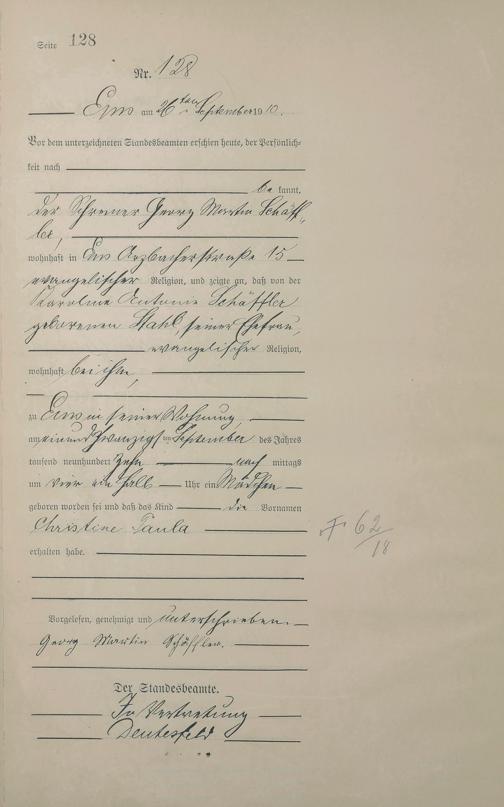 Seite 128
Nr. 128
Ems am 26ten September 1910.
Vor dem unterzeichneten Standesbeamten erschien heute, der Persönlich-
keit nach
be kannt,
der Schreiner Georg Martin Schäff-
ler,
wohnhaft in Ems Arzbacherstraße 15
evangelischer Religion, und zeigte an, daß von der
Karoline Antonie Schäffler
geborenen Stahl, seiner Ehefrau,
evangelischer Religion,
wohnhaft bei ihm,
zu Ems in seiner Wohnung,
am einundzwanzigsten September des Jahres
tausend neunhundert zehn nach mittags
um vier ein halb Uhr ein Mädchen
geboren worden sei und daß das Kind die Vornamen
Christine Paula
erhalten habe.
62/18
Vorgelesen, genehmigt und unterschrieben.
Georg Martin Schäffler.
Der Standesbeamte.
In Vertretung